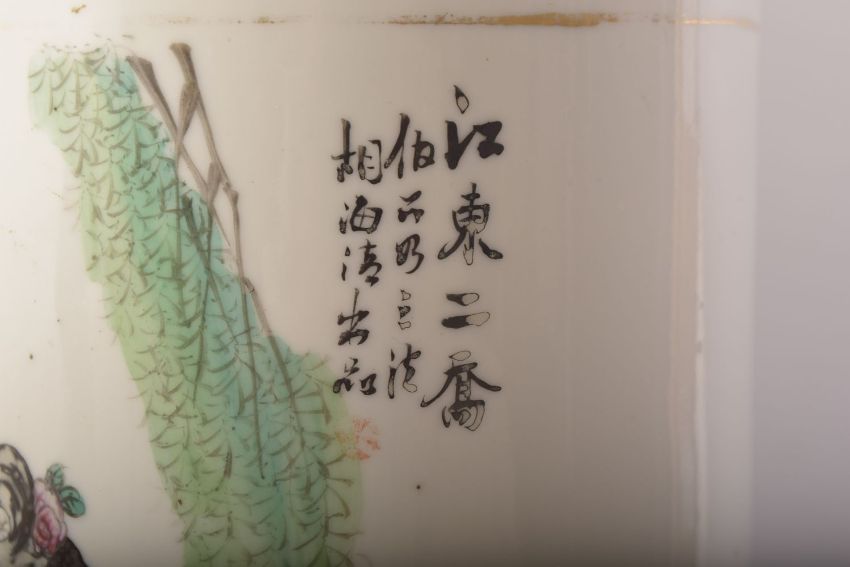 江東二喬
伯法
相海清出品